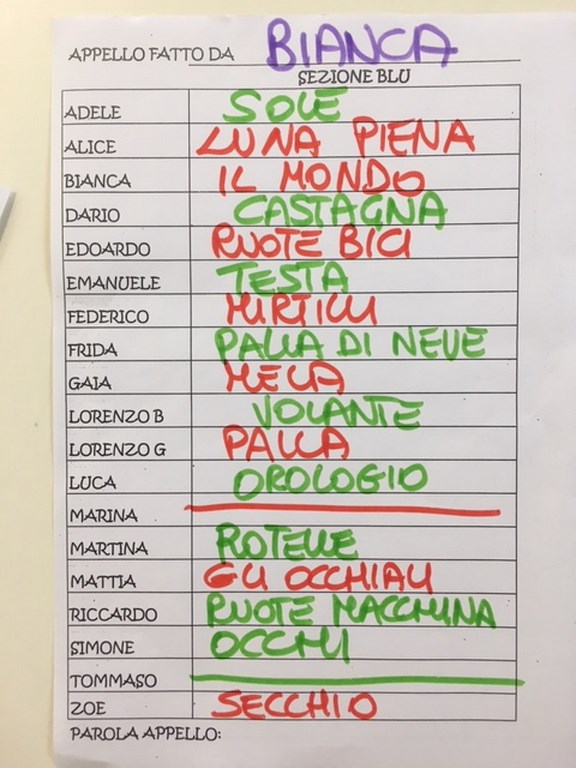 APPELLO FATTO DA BIANCA
SEZIONE BLU
ADELE SOLE
ALICE LUNA PIENA
BIANCA IL MONDO
DARIO CASTAGNA
EDOARDO RUOTE BICI
EMANUELE TESTA
FEDERICO MIRTILLI
FRIDA PALLA DI NEVE
GAIA MELA
LORENZO B VOLANTE
LORENZO G PALLA
LUCA OROLOGIO
MARINA
MARTINA ROTELLE
MATTIA GLI OCCHIALI
RICCARDO RUOTE MACCHINA
SIMONE OCCHI
TOMMASO
ZOE SECCHIO
PAROLA APPELLO: